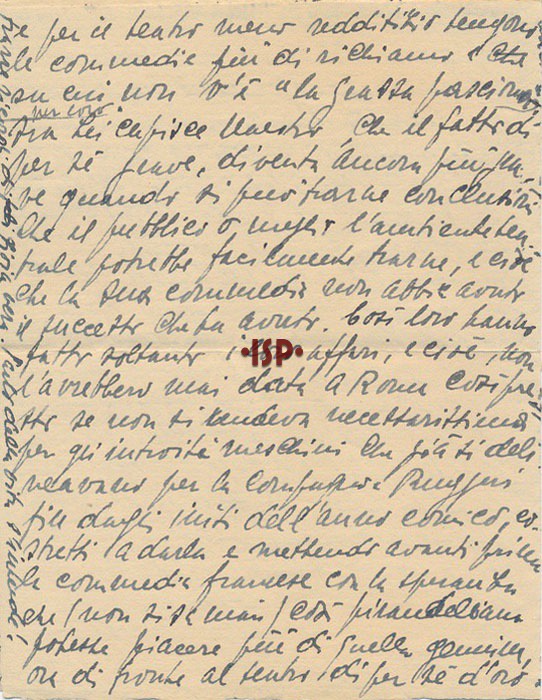 te per il teatro meno redditizio tengono
le commedie più di richiamo e che
su cui non v'è "la grossa
nuvovo"
Ma Lei capisce Maestro, che il fatto di
per sé grave, diventa ancora più gra-
ve quando si può trarne conclusioni
che il pubblico o meglio l'ambiente tea-
trale potrebbe facilmente trarne, e cioè
che la sua commedia non abbia avuto
il successo che ha avuto. Così loro hanno
fatto soltanto i loro affari, e cioè, non
l'avrebbero mai data a Roma così pre-
sto se non si rendeva necessarissima
per gli introiti meschini che già si deli
neavano per la Compagnia Ruggeri
fin dagli inizi dell'anno comico, co-
stretti a darla e mettendo avanti prima
la commedia francese con la speranza
che (non si sa mai) così pirandelliana
potesse piacere più di quella genuina,
ora di fronte al teatro di per sé d'oro
ISP